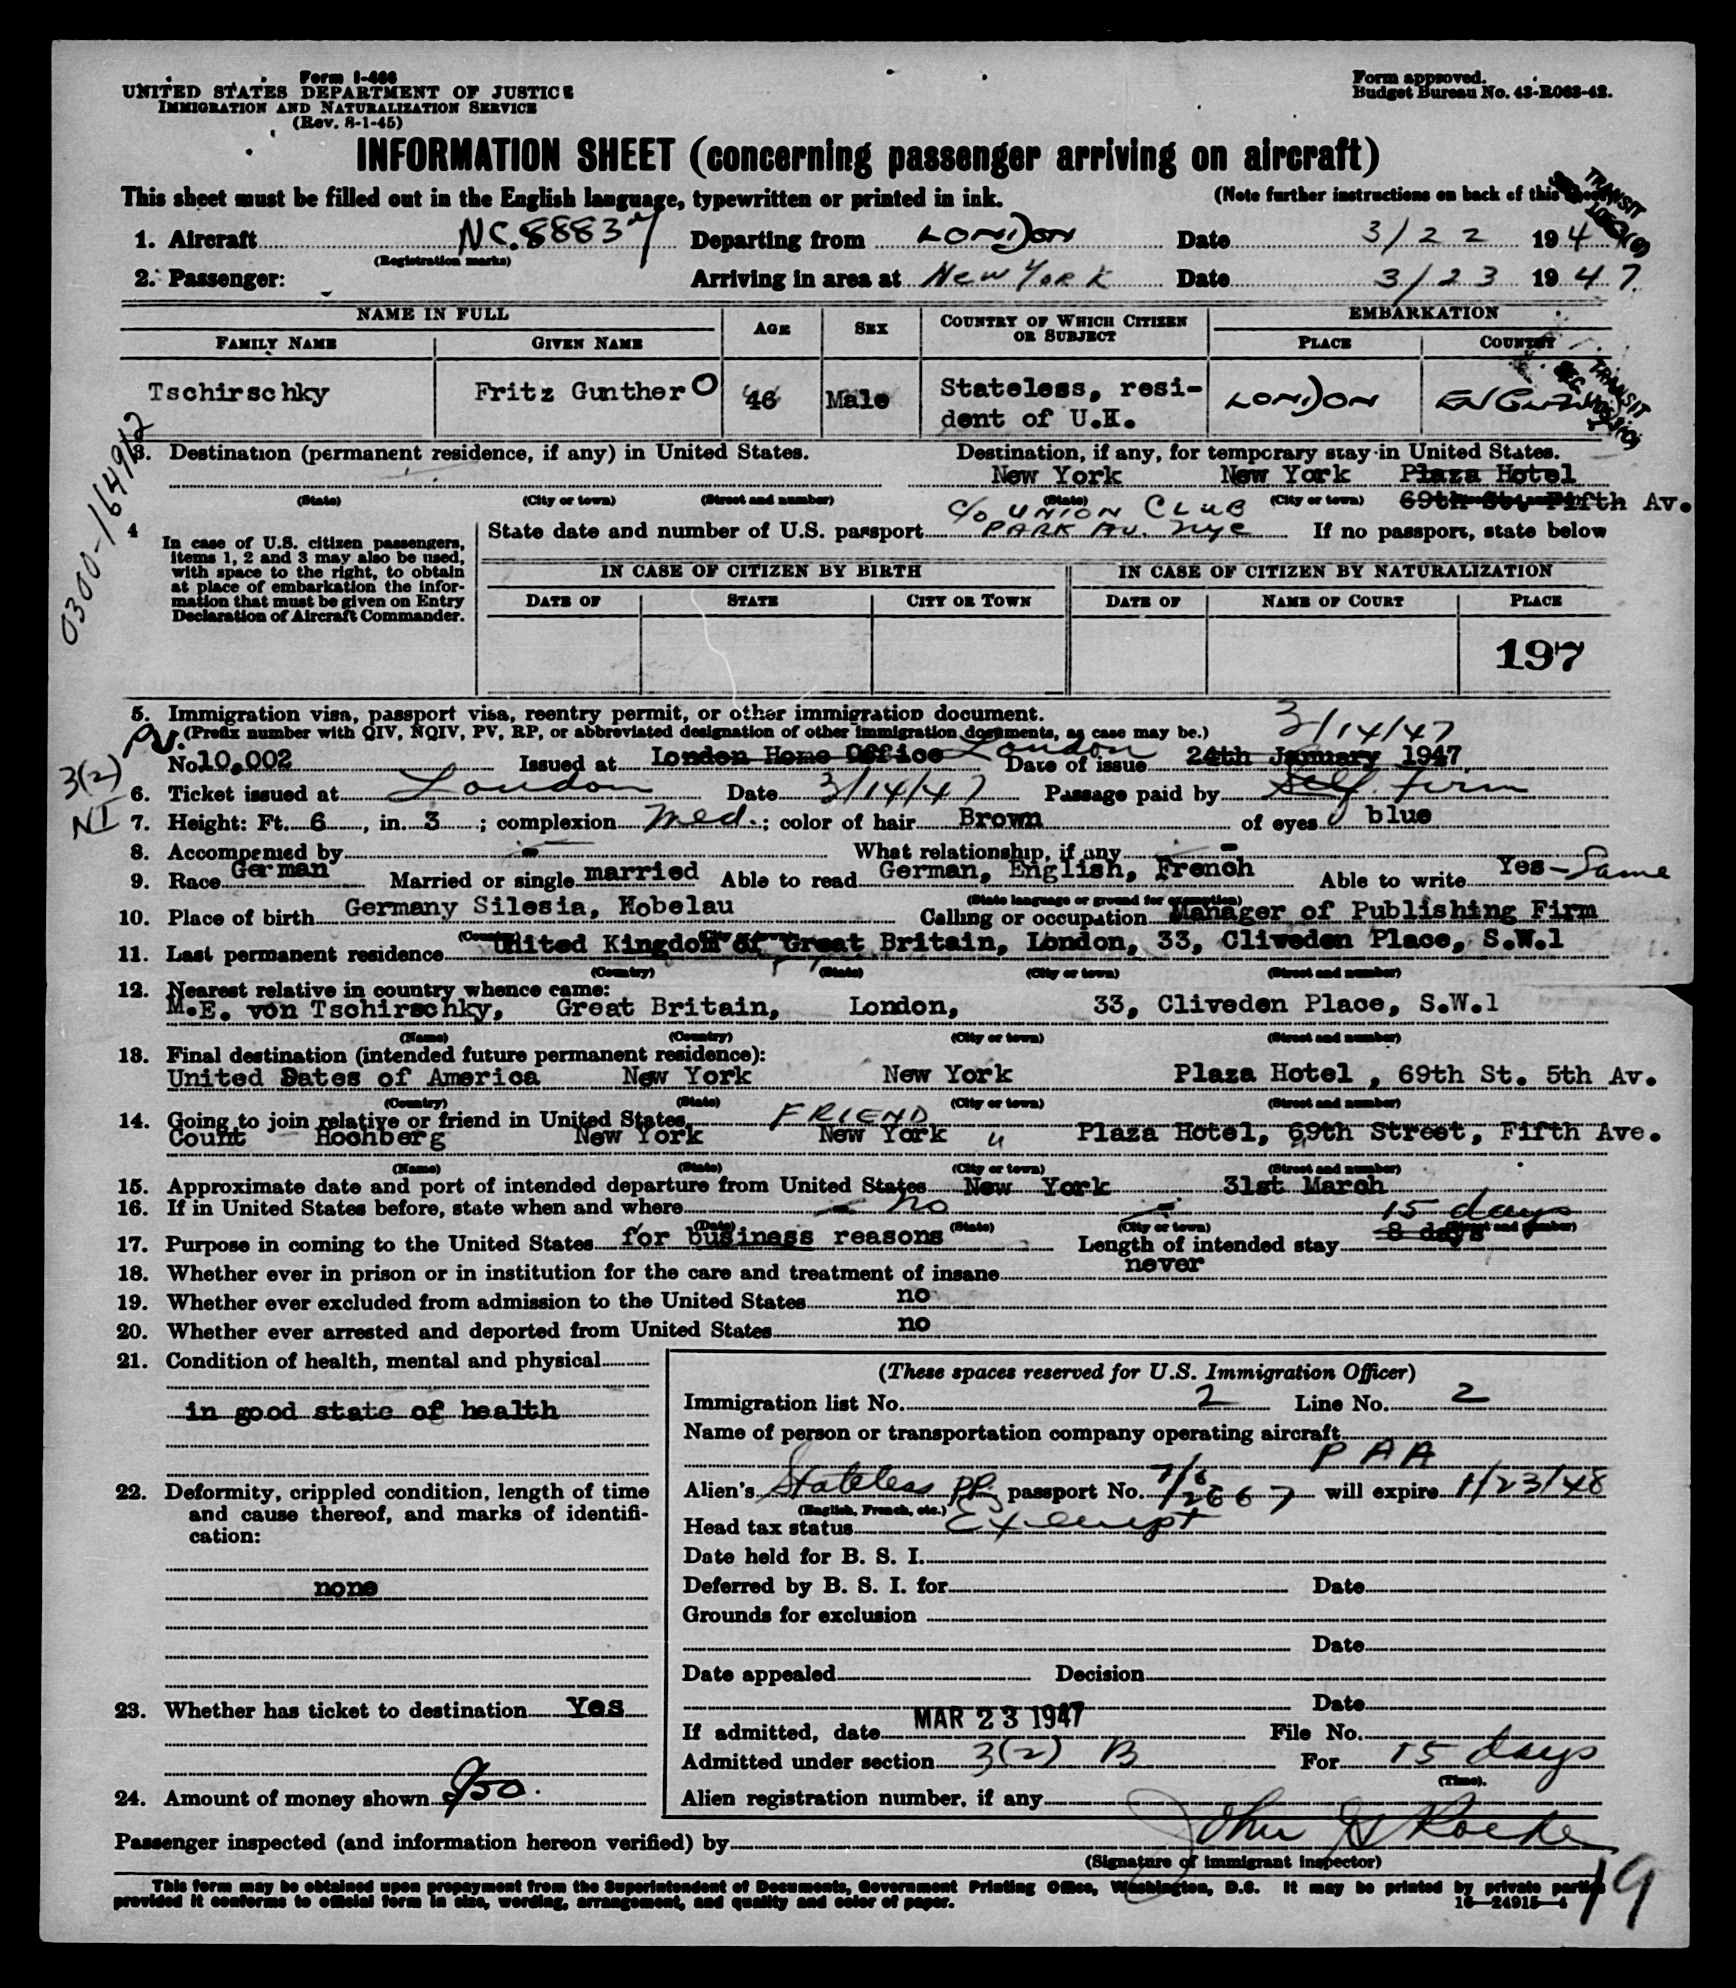 Form I-466
UNITED STATES DEPARTMENT OF JUSTICE
IMMIGRATION AND NATURALIZATION SERVICE
(Rev. 8-1-45)
Form approved.
Budget Bureau No. 43-R063-42.
INFORMATION SHEET (concerning passenger arriving on aircraft)
This sheet must be filled out in the English language, typewritten or printed in ink.
(Note further instructions on back of this
TRANSIT
1. Aircraft NC.88837 Departing from LONDON Date 3/22 194
(Registration marks)
2. Passenger: Arriving in area at New York Date 3/23 1947
NAME IN FULL AGE SEX COUNTRY OF WHICH CITIZEN OR SUBJECT EMBARKATION
FAMILY NAME GIVEN NAME PLACE COUNTRY
TRANSIT
Tschirschky Fritz Gunther O 46 Male Stateless, resi-
dent of U.K. LONDON ENGLAND
0300-164912
3. Destination (permanent residence, if any) in United States. Destination, if any, for temporary stay in United States.
New York New York Plaza Hotel
(State) (City or town) (Street and number) (State) (City or town) 69th St. Fifth Av.
c/o UNION CLUB
4 State date and number of U.S. passport PARK AV. NYC If no passport, state below
In case of U.S. citizen passengers,
items 1, 2 and 3 may also be used,
with space to the right, to obtain
at place of embarkation the infor-
mation that must be given on Entry
Declaration of Aircraft Commander.
IN CASE OF CITIZEN BY BIRTH IN CASE OF CITIZEN BY NATURALIZATION
DATE OF STATE CITY OR TOWN DATE OF NAME OF COURT PLACE
197
5. Immigration visa, passport visa, reentry permit, or other immigration document.
(Prefix number with QIV, NQIV, PV, RP, or abbreviated designation of other immigration documents, as case may be.) 3/14/47
PV.
No 10,002 Issued at London Home Office London Date of issue 24th January 1947
3(2)
NI
6. Ticket issued at London Date 3/14/47 Passage paid by Self firm
7. Height: Ft. 6, in. 3; complexion Med.; color of hair Brown of eyes blue
8. Accompanied by - What relationship, if any -
9. Race German Married or single married Able to read German, English, French Able to write Yes - Same
(State language or ground for exemption)
10. Place of birth Germany Silesia, Kobelau Calling or occupation Manager of Publishing Firm
(Country) (City or town)
11. Last permanent residence United Kingdom of Great Britain, London, 33, Cliveden Place, S.W.1
(Country) (State) (City or town) (Street and number)
12. Nearest relative in country whence came:
M.E. von Tschirschky, Great Britain, London, 33, Cliveden Place, S.W.1
(Name) (Country) (City or town) (Street and number)
13. Final destination (intended future permanent residence):
United Sates of America New York New York Plaza Hotel , 69th St. 5th Av.
(Country) (State) (City or town) (Street and number)
14. Going to join relative or friend in United States FRIEND
Count Hochberg New York New York " Plaza Hotel, 69th Street, Fifth Ave.
(Name) (State) (City or town) (Street and number)
15. Approximate date and port of intended departure from United States New York 31st March
16. If in United States before, state when and where - No -
(Date) (State) (City or town) (Street and number)
15 days
17. Purpose in coming to the United States for business reasons Length of intended stay 8 days
18. Whether ever in prison or in institution for the care and treatment of insane never
19. Whether ever excluded from admission to the United States no
20. Whether ever arrested and deported from United States no
21. Condition of health, mental and physical
in good state of health
22. Deformity, crippled condition, length of time
and cause thereof, and marks of identifi-
cation:
none
23. Whether has ticket to destination Yes
24. Amount of money shown $50.
(These spaces reserved for U.S. Immigration Officer)
Immigration list No. 2 Line No. 2
Name of person or transportation company operating aircraft
PAA
Alien's Stateless PP. passport No. will expire 1/23/48
(English, French, etc.)
Head tax status Exempt
Date held for B. S. I.
Deferred by B. S. I. for Date
Grounds for exclusion
Date
Date appealed Decision
Date
If admitted, date MAR 23 1947 File No.
Admitted under section 3(2) B For 15 days
(Time).
Alien registration number, if any
Passenger inspected (and information hereon verified) by John
(Signature of immigrant inspector)
This form may be obtained upon prepayment from the Superintendent of Documents, Government Printing Office, Washington, D.C. It may be printed by private parties
provided it conforms to official form in size, wording, arrangement, and quality and color of paper.
16-24915-4
19